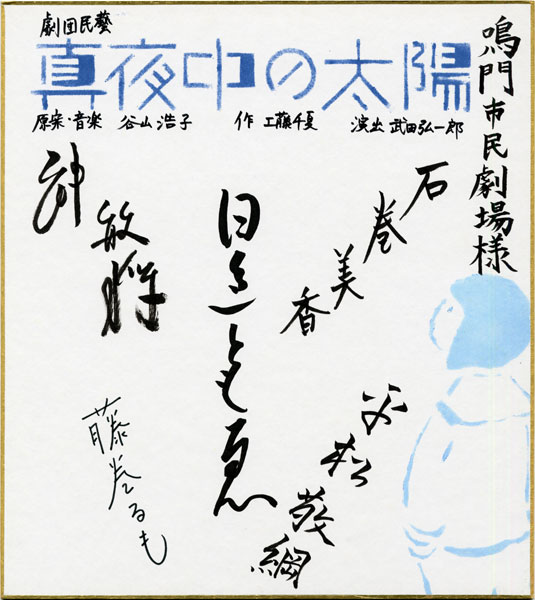 劇団民藝
真夜中の太陽
原案・音楽 谷山浩子 作 工藤千夏 演出 武田弘一郎
鳴門市民劇場様
石巻美香
平松敬綱
日色ともゑ
神敏将
藤巻るも